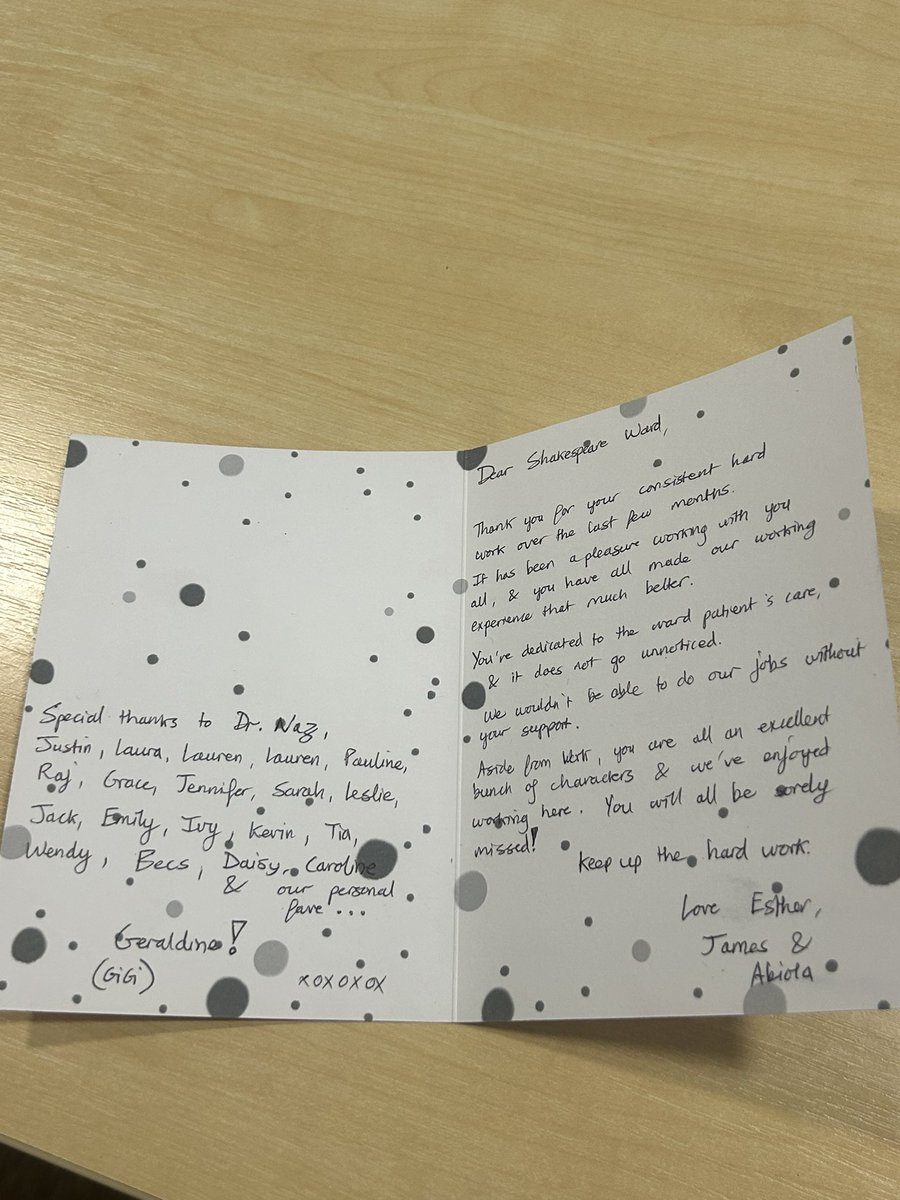 Special thanks to Dr. Naz,
Justin, Laura, Lauren, Lauren, Pauline,
Raj, Grace, Jennifer, Sarah, Leslie,
Jack, Emily, Ivy, Kevin, Tia,
Wendy, Becs, Daisy, Caroline
& our personal
fave ...
Geraldine!
(GiGi)
xoxoxox
Dear Shakespeare Ward,
Thank you for your consistent hard
work over the last few months.
It has been a pleasure working with you
all, & you have all made our working
experience that much better.
You've dedicated to the ward patient's care,
& it does not go unnoticed.
We wouldn't be able to do our jobs without
your support.
Aside from work, you are all an excellent
bunch of characters & we've enjoyed
working here. You will all be sorely
missed!
Keep up the hard work.
Love Esther,
James &
Abiola